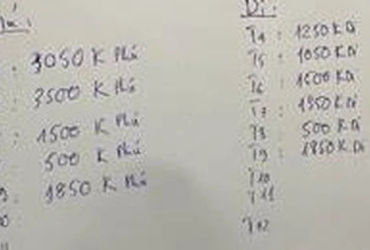 : 3050 K Phú
: 3500 K Phú
: 1500 K Phú
500 K Phú
9. 1850 K Phú
Di:
T4 : 1250 K Di
T5 : 1050 K Di
T6 : 1500 K Di
T7 : 1350 K Di
T8 500 K Di
T9 : 1850 K Di
T10
T11
T12